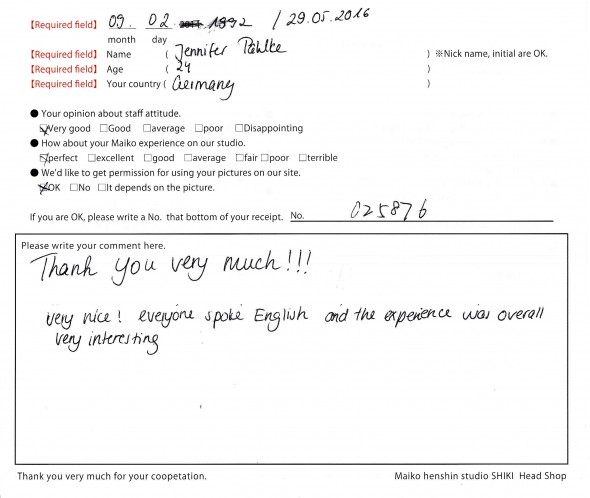 【Required field】 09. 02 1992 / 29.05.2016
month day
【Required field】 Name ( Jennifer Pahlke ) ※Nick name, initial are OK.
【Required field】 Age ( 24 )
【Required field】 Your country ( Germany )
● Your opinion about staff attitude.
☑Very good □Good □average □poor □Disappointing
● How about your Maiko experience on our studio.
☑perfect □excellent □good □average □fair □poor □terrible
● We'd like to get permission for using your pictures on our site.
☑OK □No □It depends on the picture.
If you are OK, please write a No. that bottom of your receipt. No. 025876
Please write your comment here.
Thank you very much!!!
very nice! everyone spoke English and the experience was overall
very interesting
Thank you very much for your coopetation. Maiko henshin studio SHIKI Head Shop